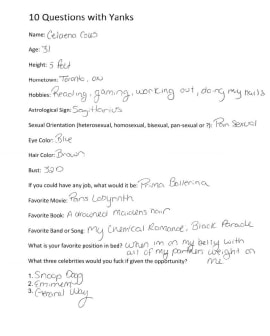 10 Questions with Yanks
Name: Celaena Cous
Age: 31
Height: 5 feet
Hometown: Toronto, ON
Hobbies: Reading, gaming, working out, doing my nails
Astrological Sign: Sagittarius
Sexual Orientation (heterosexual, homosexual, bisexual, pan-sexual or ?): Pan Sexual
Eye Color: Blue
Hair Color: Brown
Bust: 32D
If you could have any job, what would it be: Prima Ballerina
Favorite Movie: Pans Labyrinth
Favorite Book: A drowned maidens hair
Favorite Band or Song: My Chemical Romance, Black Parade
What is your favorite position in bed? When im on my belly with
all of my partners weight on
me
What three celebrities would you fuck if given the opportunity?
1. Snoop Dogg
2. Eminem
3. Gerard Way